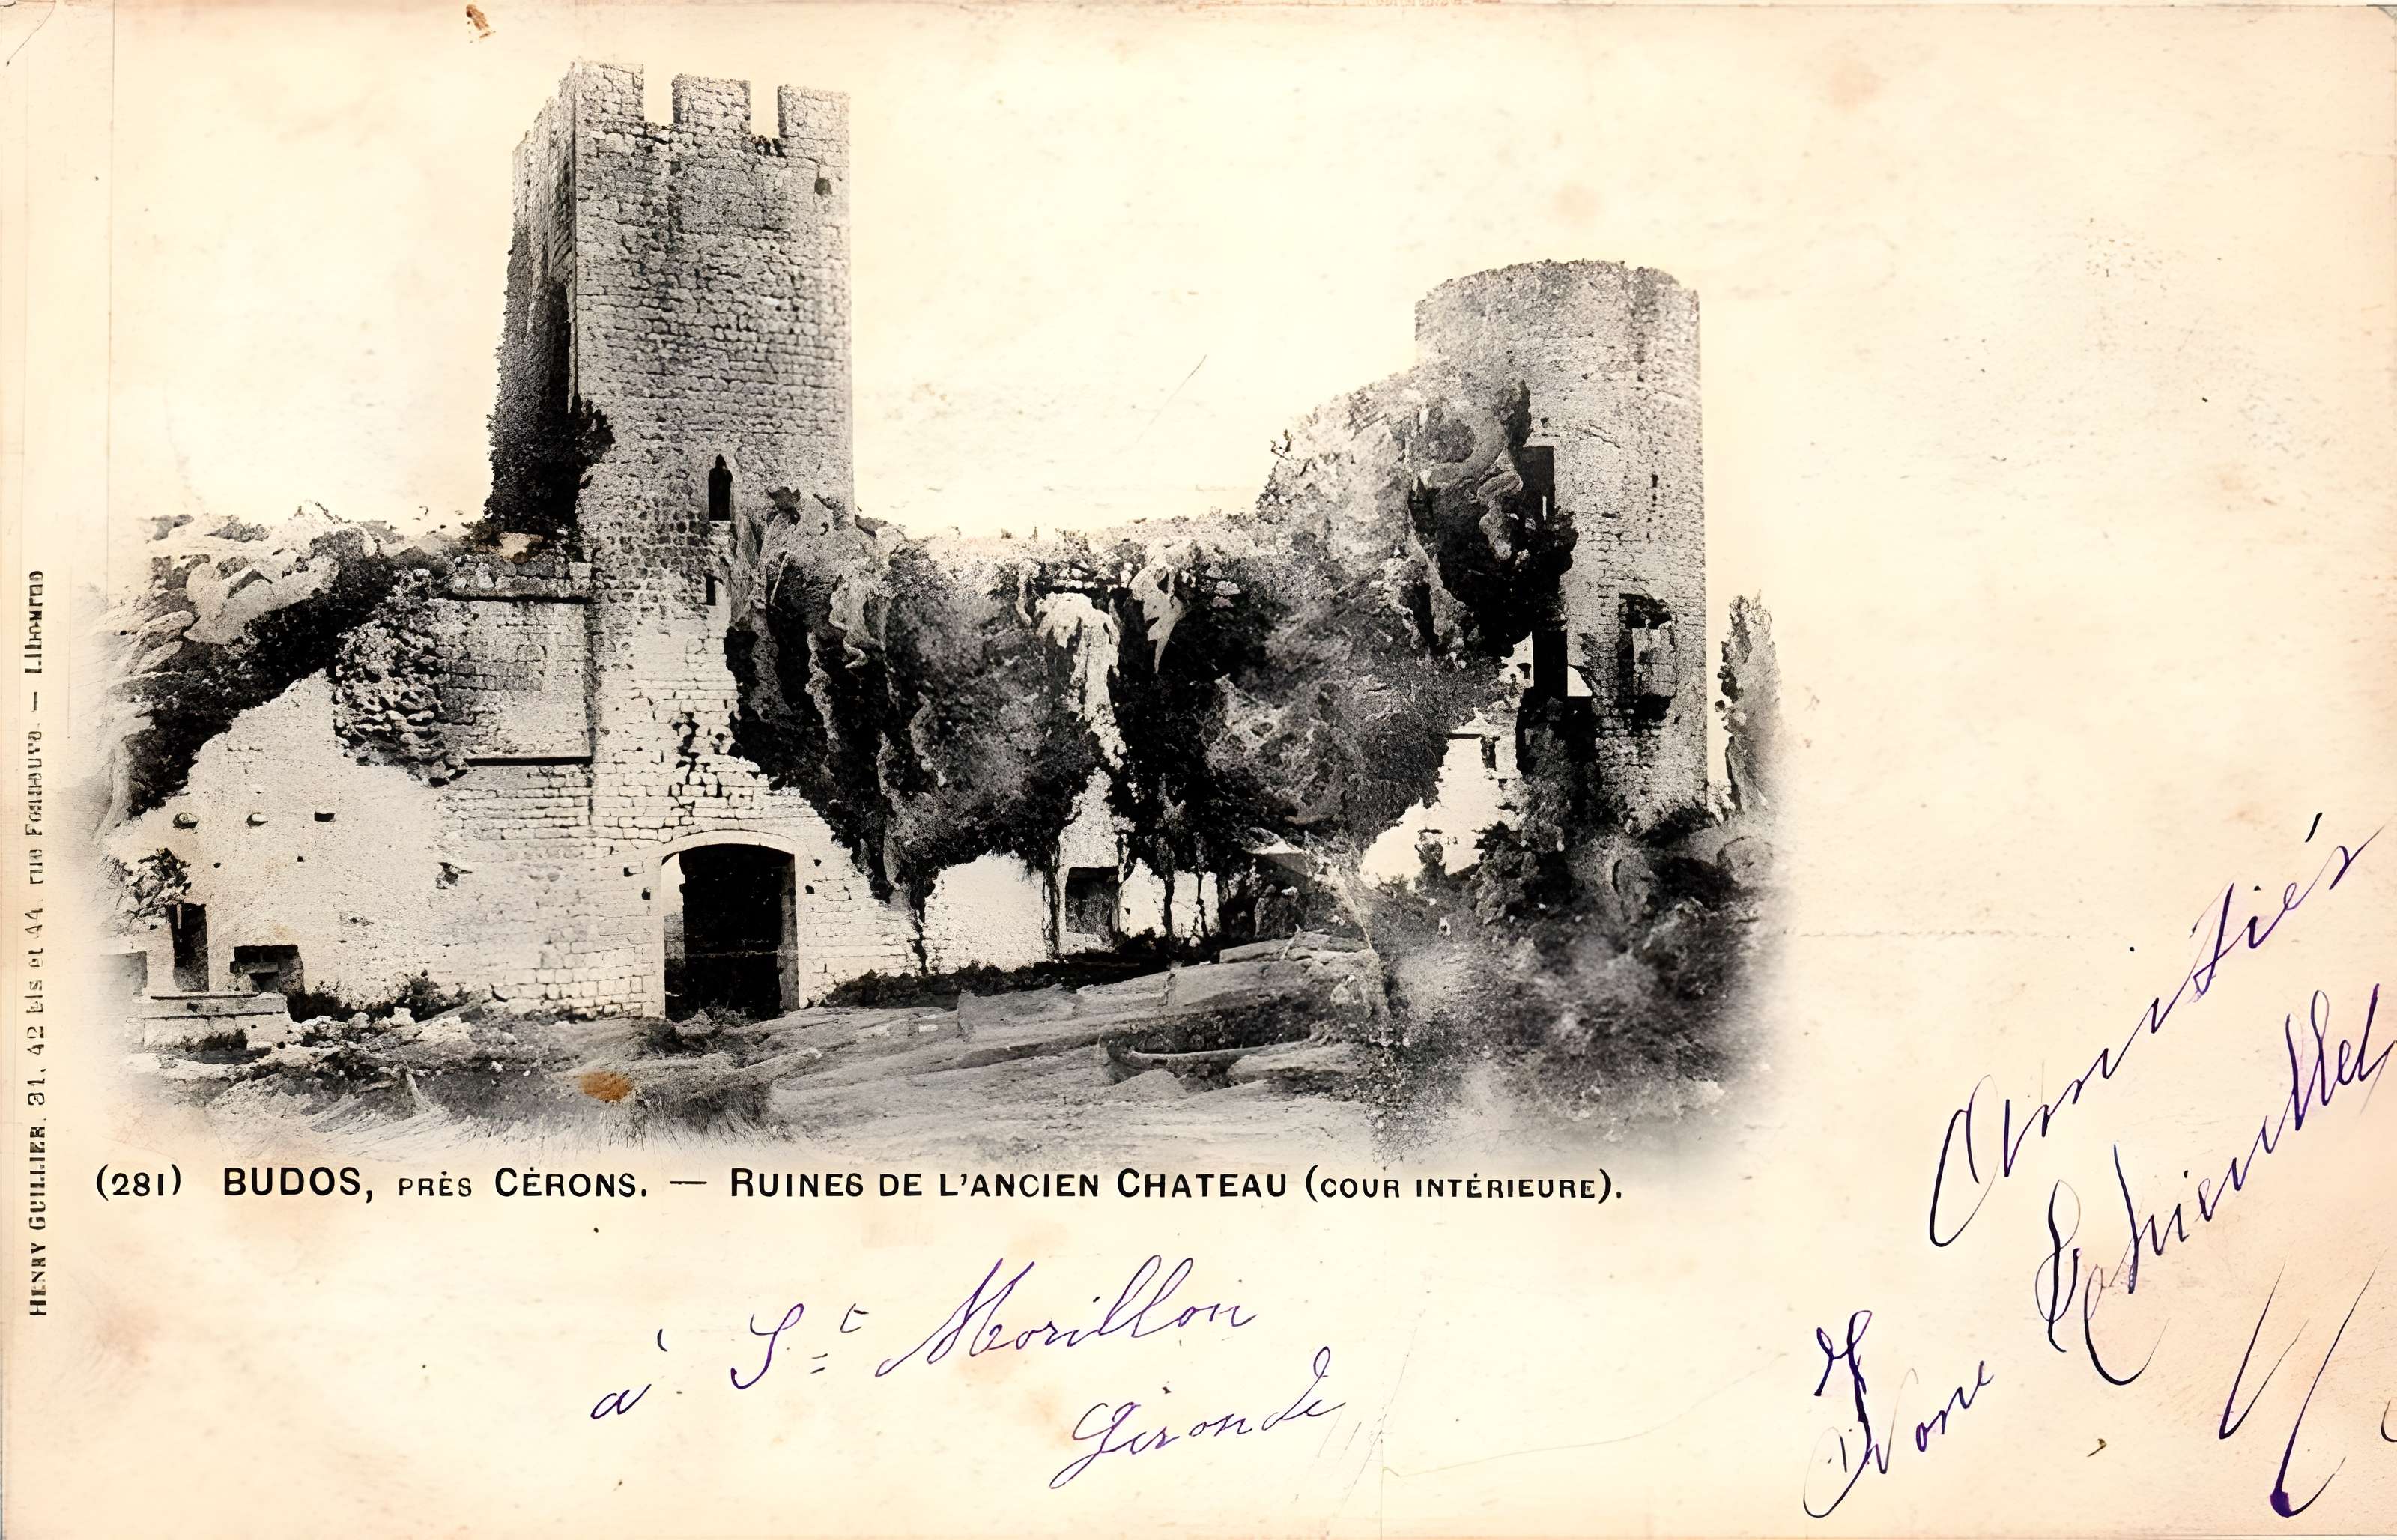 HENRY GUILLIER. 31. 42 bis et 44. rue Fonneuve. — Libourne
(281) BUDOS, PRÈS CÉRONS. — RUINES DE L'ANCIEN CHATEAU (COUR INTÉRIEURE).
à St Morillon
Gironde
Amitiés
Yvonne